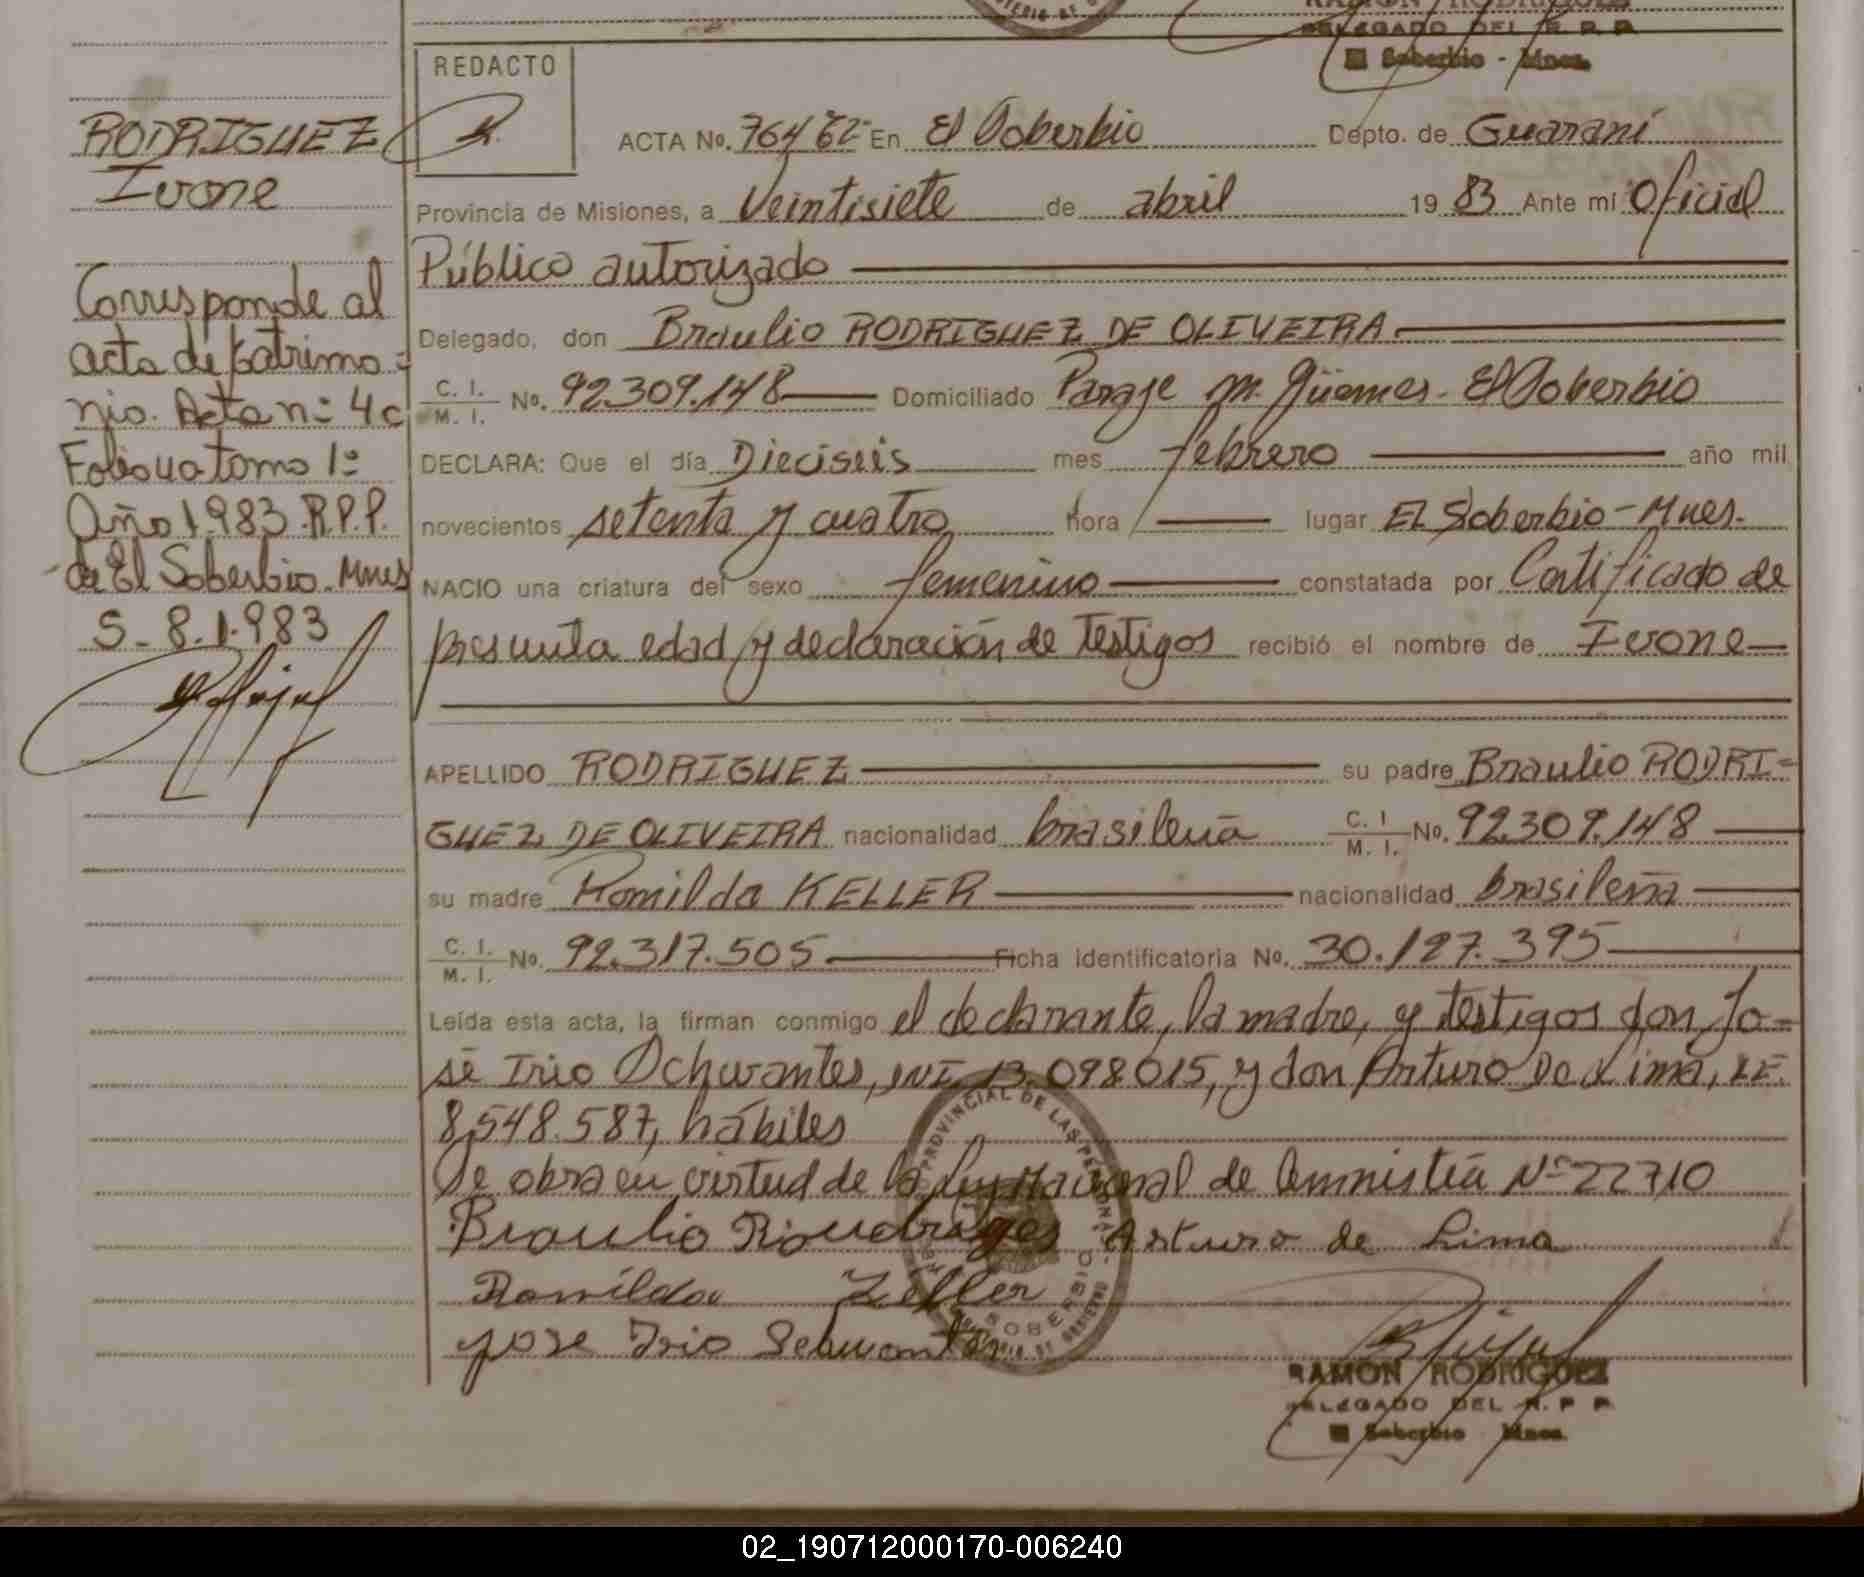 RAMON RODRIGUEZ
DELEGADO DEL R. P. P.
El Soberbio - Mnes.
REDACTO
RODRIGUEZ
Ivone
Corresponde al
acta de patrimo=
nio. Acta n:
Año 1983. R.P.P.
de El Soberbio. Mnes
S. 8.1.983
ACTA No. En El Soberbio Depto. de Guaraní
Provincia de Misiones, a Veintisiete de abril 19 83 Ante mí Oficial
Público autorizado
Delegado, don Braulio RODRIGUEZ DE OLIVEIRA
C. I.
M. I. No. 92.309.148 Domiciliado Paraje M. Güemes - El Soberbio
DECLARA: Que el día Dieciseis mes febrero año mil
novecientos setenta y cuatro hora lugar El Soberbio - Mnes.
NACIO una criatura del sexo femenino constatada por Certificado de
presunta edad y declaración de testigos recibió el nombre de Ivone
APELLIDO RODRIGUEZ su padre Braulio RODRI=
GUEZ DE OLIVEIRA nacionalidad brasileña C. I.
M. I. No. 92.309.148
su madre Romilda KELLER nacionalidad brasileña
C. I.
M. I. No. 92.317.505 Ficha identificatoria No. 30.127.395
Leída esta acta, la firman conmigo el declarante, la madre, y testigos don Jo=
sé Irio 13.098.015, y don Arturo De Lima, LE.
8.548.587, hábiles
Se obra en virtud de la Ley Nacional de Amnistía Nº 22710
Braulio Arturo de Lima
Romilda Zeller
Jose Irio
PROVINCIAL DE LAS PERSONAS
SOBERBIO
RAMON RODRIGUEZ
DELEGADO DEL R. P. P.
El Soberbio - Mnes.
02_190712000170-006240